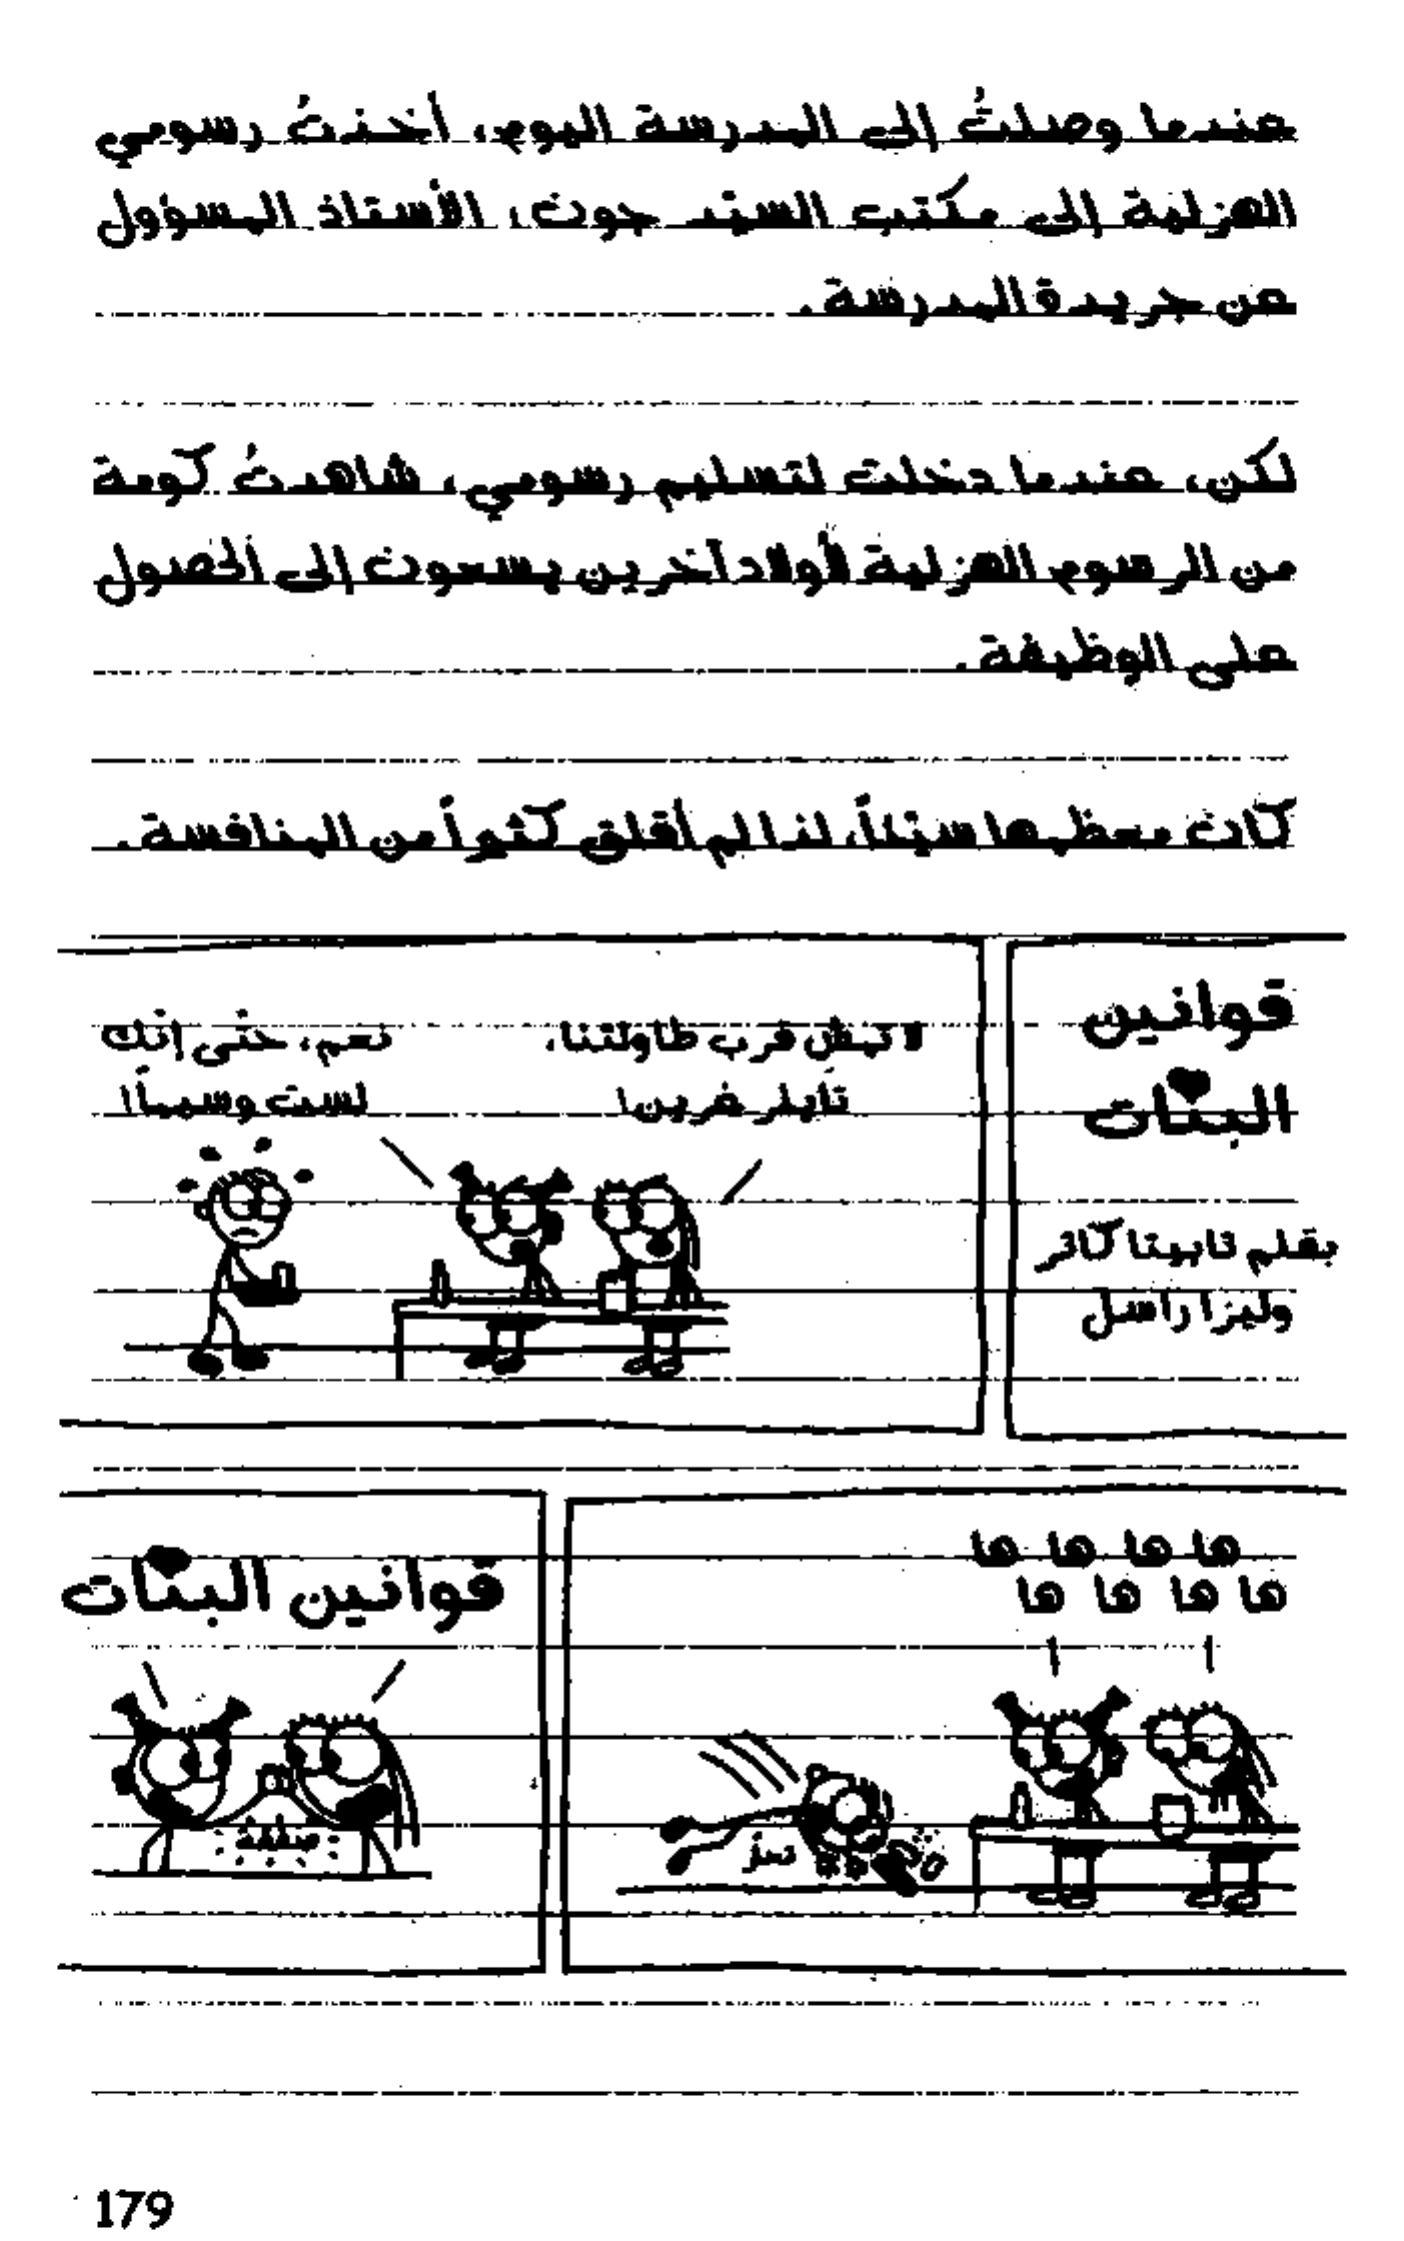 عندما وصلتُ إلى المدرسة اليوم، أخذتُ رسومي
الهزلية إلى مكتب السيّد جون، الأستاذ المسؤول
عن جريدة المدرسة.
لكن، عندما دخلت لتسليم رسومي، شاهدتُ كومة
من الرسوم الهزلية لأولاد آخرين يسعون إلى الحصول
على الوظيفة.
كان معظمها سيّئاً، لذا لم أقلق كثيراً من المنافسة.
قوانين
البنات
بقلم تابيتا كاتر
وليزا راسل
لا تمشِ قرب طاولتنا،
تايلر غرين!
نعم، حتّى إنّك
لست وسيماً!
ها ها ها ها
ها ها ها ها
تعثّر
قوانين البنات
صفقة
179